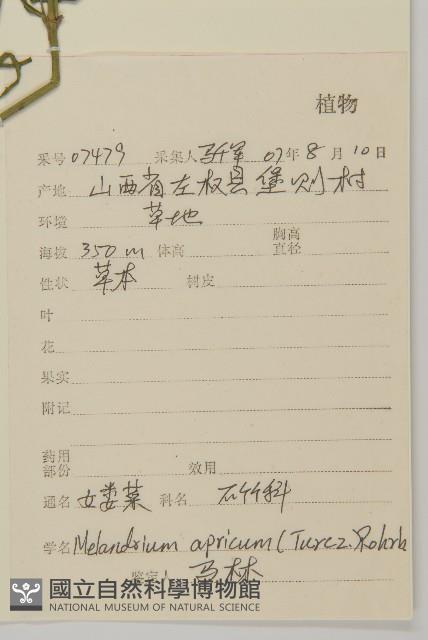 植物
采号 07479 采集人 07年 8月 10日
产地 山西省左权县堡则村
环境 草地
海拔 350 m 体高 胸高直径
性状 草本 树皮
叶
花
果实
附记
药用部份 效用
通名 女娄菜 科名 石竹科
学名 Melandrium apricum (Turcz. Rohrb
鉴定人 马林
國立自然科學博物館
NATIONAL MUSEUM OF NATURAL SCIENCE